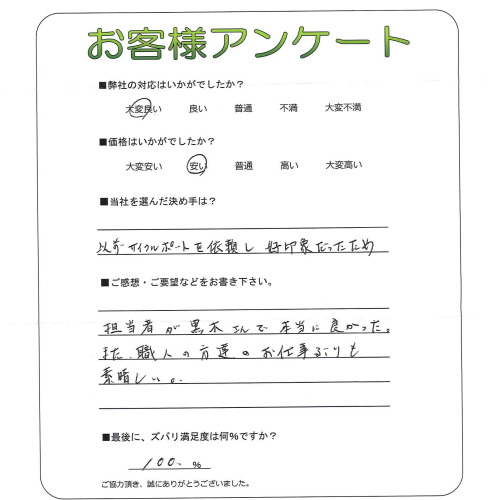 お客様アンケート
■弊社の対応はいかがでしたか？
大変良い 良い 普通 不満 大変不満
■価格はいかがでしたか？
大変安い 安い 普通 高い 大変高い
■当社を選んだ決め手は？
以前サイクルポートを依頼し 好印象だったため
■ご感想・ご要望などをお書き下さい。
担当者が黒木さんで本当に良かった。
また、職人の方達のお仕事ぶりも
素晴しい。
■最後に、ズバリ満足度は何％ですか？
100 %
ご協力頂き、誠にありがとうございました。